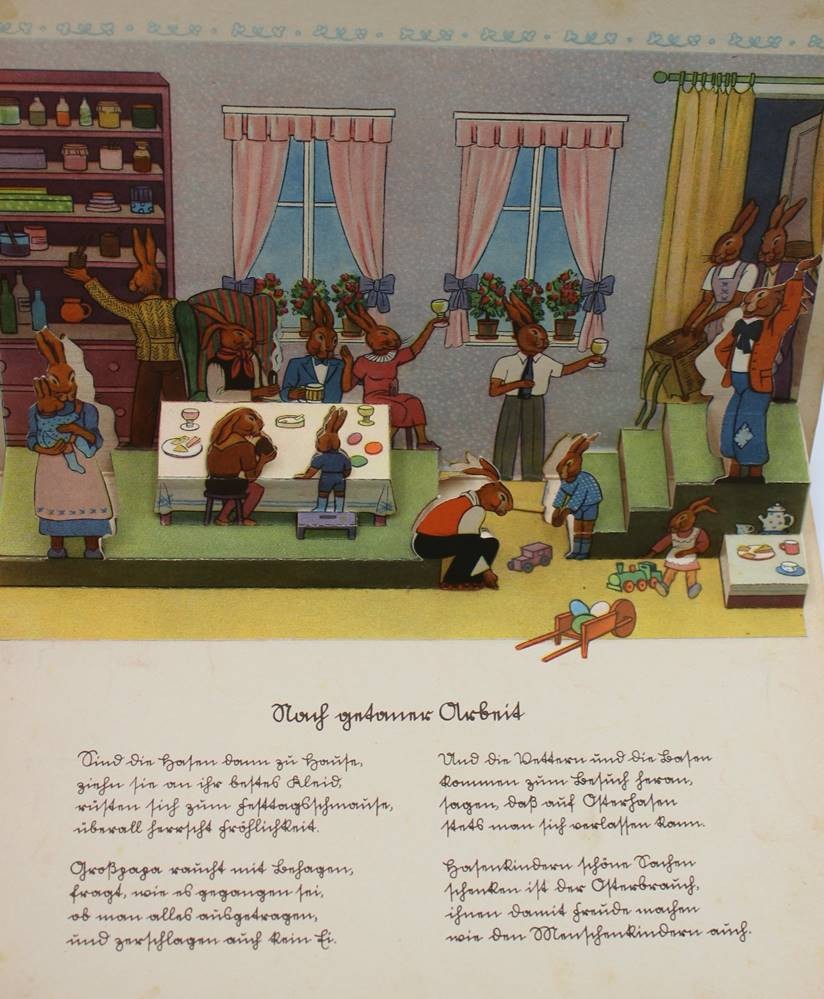 Nach getaner Arbeit
Sind die Hasen dann zu Hause,
ziehn sie an ihr bestes Kleid,
rüsten sich zum Festtagsschmause,
überall herrscht Fröhlichkeit.
Großpapa raucht mit Behagen,
fragt, wie es gegangen sei,
ob man alles ausgetragen,
und zerschlagen auch kein Ei.
Und die Vettern und die Basen
kommen zum Besuch heran,
sagen, daß auf Osterhasen
stets man sich verlassen kann.
Hasenkindern schöne Sachen
schenken ist der Osterbrauch,
ihnen damit Freude machen
wie den Menschenkindern auch.